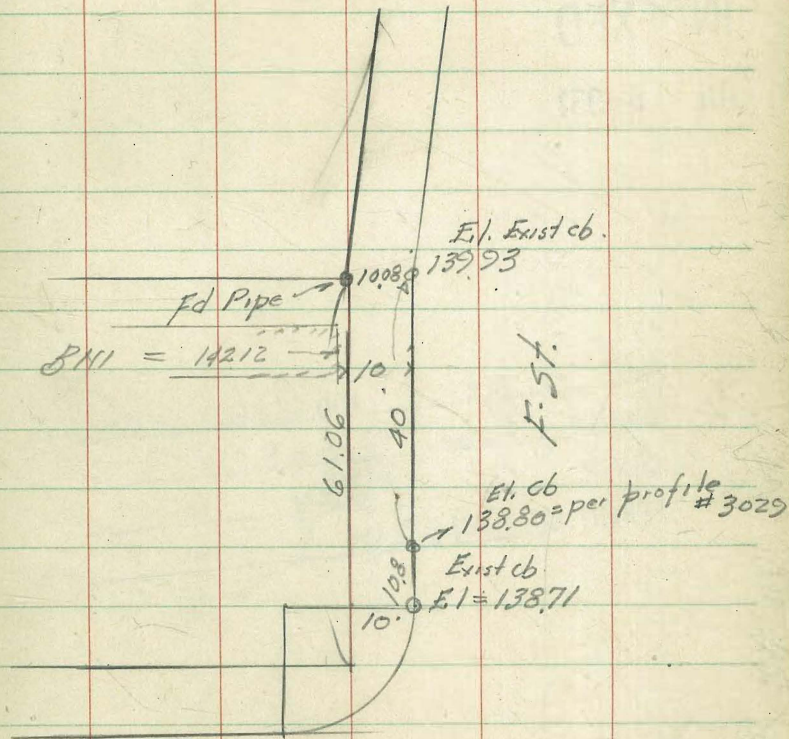 El. Exist cb.
10.08
139.93
Fd Pipe
= 142.12
10
61.06
40
F. St.
El. cb
138.80 = per profile
# 3029
Exist cb.
10.8
El = 138.71
10.